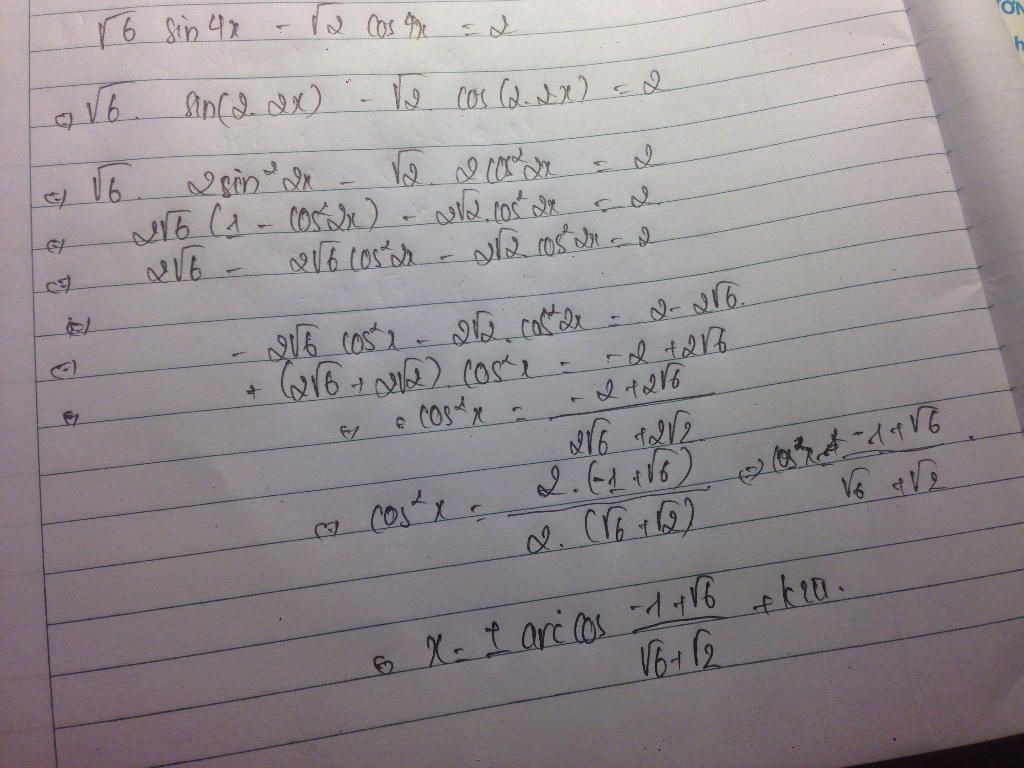 √6 sin 4x - √2 cos 4x = 2
⇔ √6. sin(2.2x) - √2 cos(2.2x) = 2
⇔ √6. 2sin²2x - √2. 2cos²2x = 2
⇔ 2√6 (1 - cos²2x) - 2√2.cos²2x = 2
⇔ 2√6 - 2√6 cos²2x - 2√2 cos²2x = 2
⇔
⇔ - 2√6 cos²x - 2√2.cos²2x = 2 - 2√6.
⇔ + (2√6 + 2√2).cos²x = -2 + 2√6
⇔ cos²x = (-2 + 2√6)/(2√6 + 2√2)
⇔ cos²x = (2.(-1 + √6))/(2.(√6 + √2)) ⇔ cos²x = (-1 + √6)/(√6 + √2).
⇔ x = ± arc cos (-1 + √6)/(√6 + √2) + k2π.